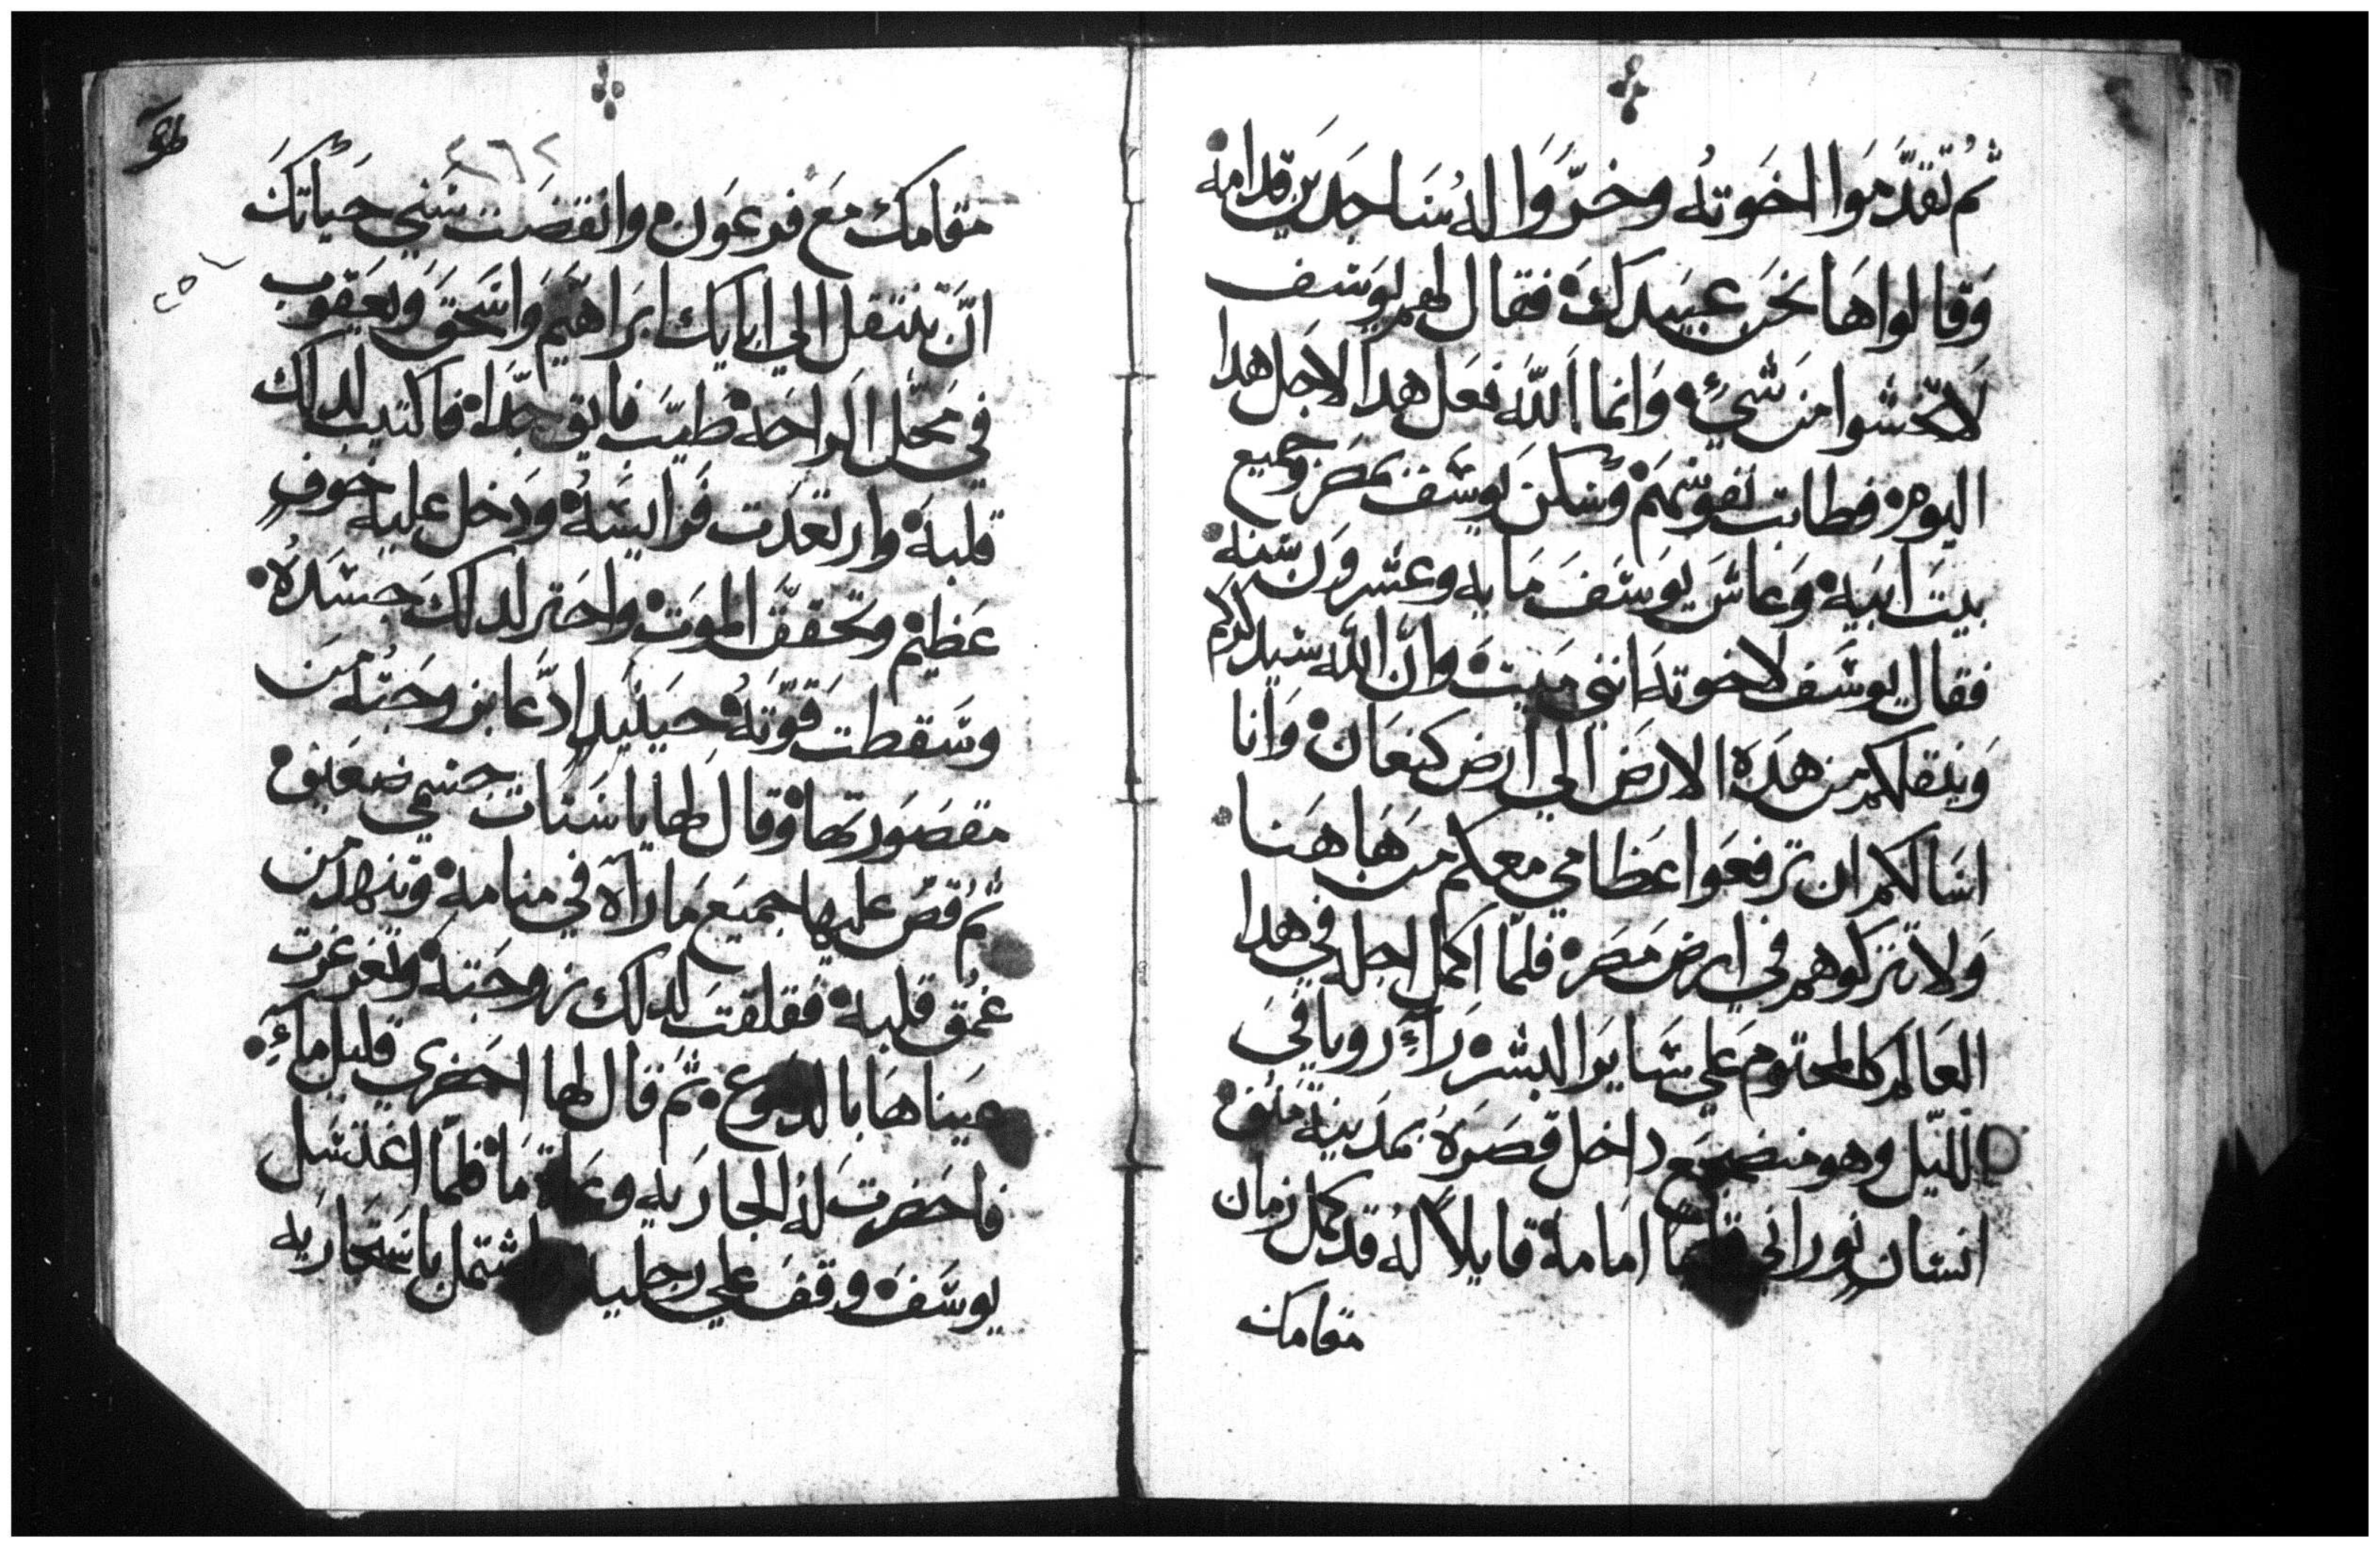 ثم تقدموا اخوته وخروا له ساجدين قدامه
وقالوا ها نحن عبيدك فقال لهم يوسف
لا تخشوا من شيء وانما الله فعل هدا لاجل هدا
اليوم فطابت نفوسهم وسكن يوسف بمصر وجميع
بيت ابيه وعاش يوسف مايه وعشرون سنه
فقال يوسف لاخوته انني ميت وان الله سيدكركم
وينقلكم من هده الارض الي ارض كنعان وانا
اسالكم ان ترفعوا عظامي معكم من ها هنا
ولا تتركوهم في ارض مصر فلما اكمل اجله في هدا
العالم كالمحتوم علي ساير البشر راء رويا في
الليل وهو منضجع داخل قصره بمدينة منف
انسان نوراني قايما امامه قايلا له قد كمل زمان
مقامك
مقامك مع فرعون وانقضت سني حياتك
ان تنتقل الي ابايك ابراهيم واسحق ويعقوب
في محل الراحه طيب فايق جدا فاكتيب لدلك
قلبه وارتعدت فرايسه ودخل عليه خوف
عظيم وتحقق الموت واحتر لدلك جسده
وسقطت قوته حينيد ادعا بزوجته من
مقصورتها وقال لها يا سنات جنبي ضعيف
ثم قص عليها جميع ما راه في منامه وتنهد من
عمق قلبه فقلقت لدلك زوجته وتغرغرت
عيناها بالدموع ثم قال لها احضري قليل ماء
فاحضرت له الجاريه وعاء ما فلما اغتسل
يوسف وقف علي رجليه واشتمل باسحاريه